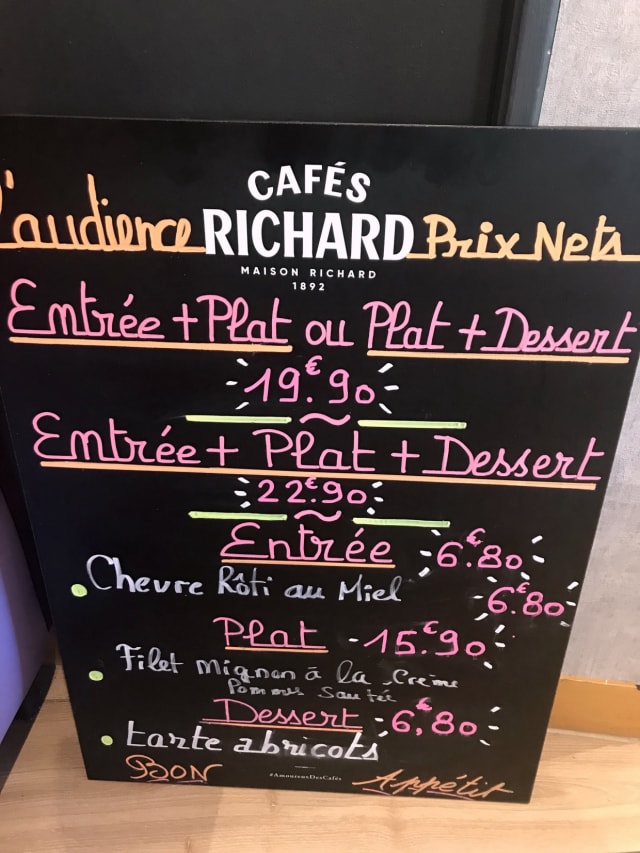 CAFÉS
l'audience RICHARD Prix Nets
MAISON RICHARD
1892
Entrée + Plat ou Plat + Dessert
19.€90
Entrée + Plat + Dessert
22.€90
Entrée 6.€80
Chevre Rôti au Miel 6.€80
Plat - 15.€90
Filet Mignon à la Crème
Pommes Sautée
Dessert 6,€80
tarte abricots
BON Appétit
#AmoureuxDesCafés